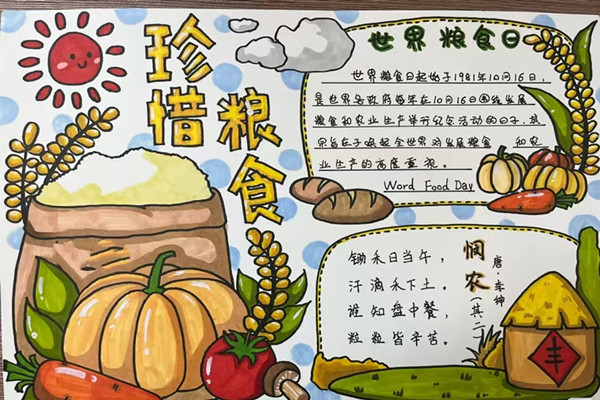 珍惜
粮食
世界粮食日
世界粮食日起始于1981年10月16日,
是世界各政府每年在10月16日围绕发展
粮食和农业生产举行纪念活动的日子,其
旨在于唤起全世界对发展粮食 和农
业生产的高度重视。
Word Food Day
悯农(其二)
唐·李绅
锄禾日当午,
汗滴禾下土。
谁知盘中餐,
粒粒皆辛苦。
丰